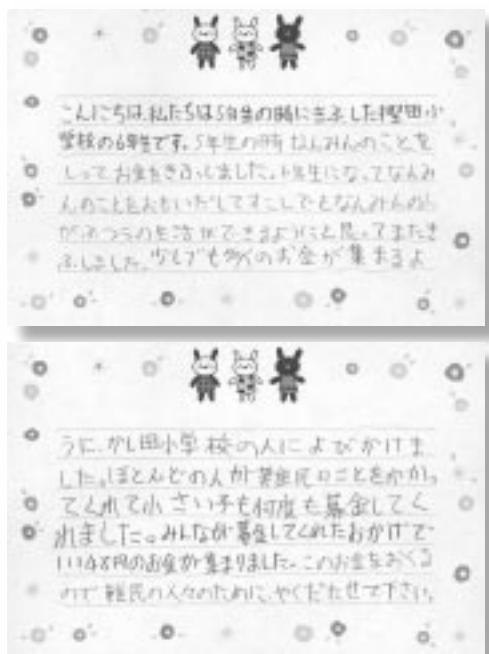 こんにちは、私たちは5年生の時にきふした樫田小
学校の6年生です。5年生の時なんみんのことを
しってお金をきふしました。6年生になってなんみ
んのことをおもいだしてすこしでもなんみんの
がふつうの生活ができるようにと思ってまたき
ふしました。少しでも多くのお金が集まるよ
うに、かし田小学校の人によびかけま
した。ほとんどの人が難民のことをわかっ
てくれて小さい子も何度も募金してく
れました。みんなが募金してくれたおかげで
11148円のお金が集まりました。このお金をおくる
ので難民の人々のために、やくだたせて下さい。